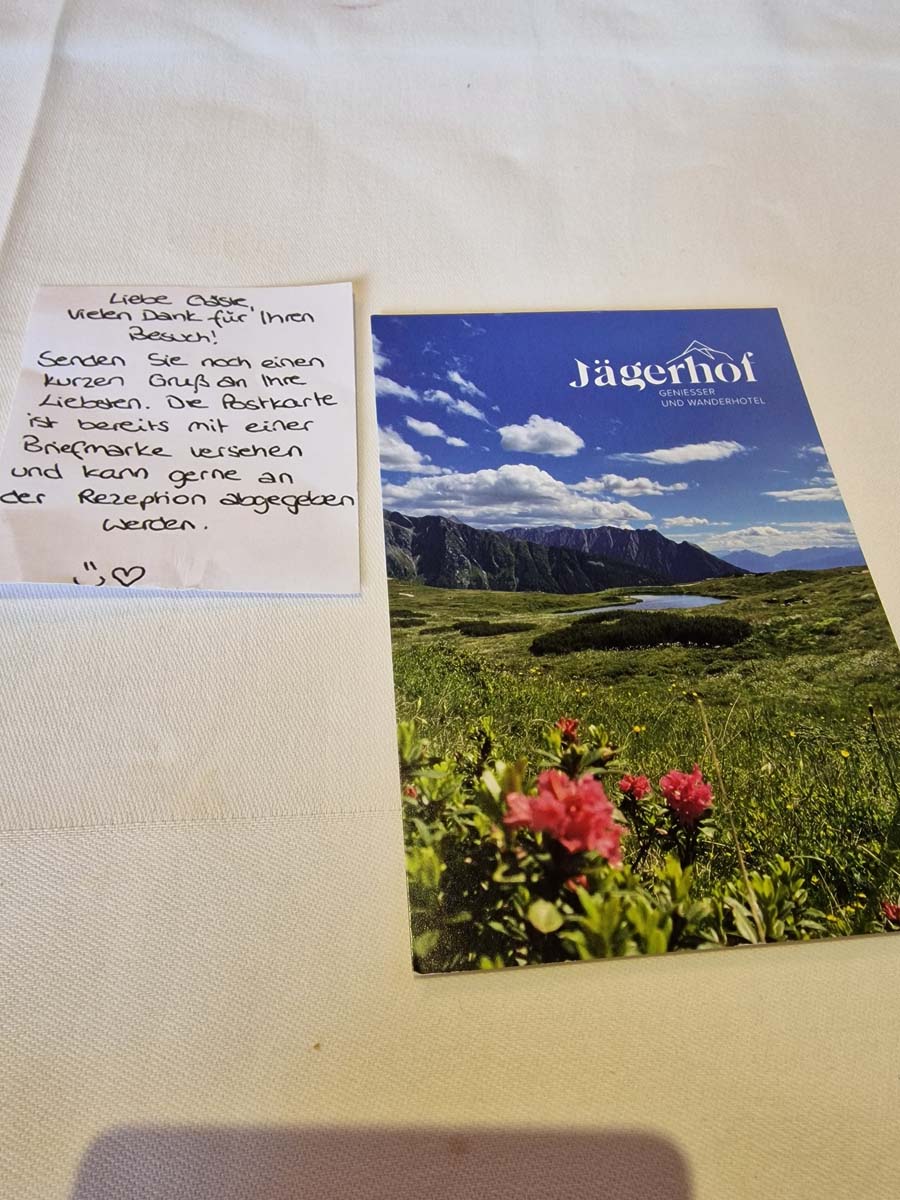 Liebe Gäste,
vielen Dank für Ihren
Besuch!
Senden Sie noch einen
kurzen Gruß an Ihre
Liebsten. Die Postkarte
ist bereits mit einer
Briefmarke versehen
und kann gerne an
der Rezeption abgegeben
werden.
Jägerhof
GENIESSER
UND WANDERHOTEL